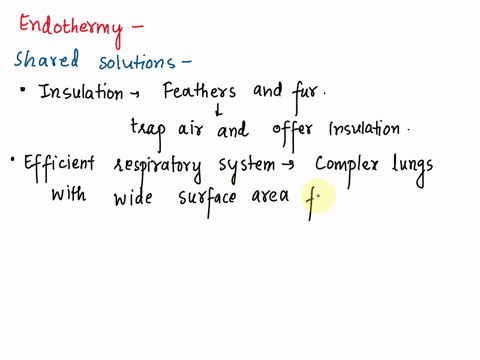 Endothermy -
Shared solutions -
• Insulation → Feathers and fur.
↓
trap air and offer insulation.
• Efficient respiratory system → Complex lungs
with wide surface area f